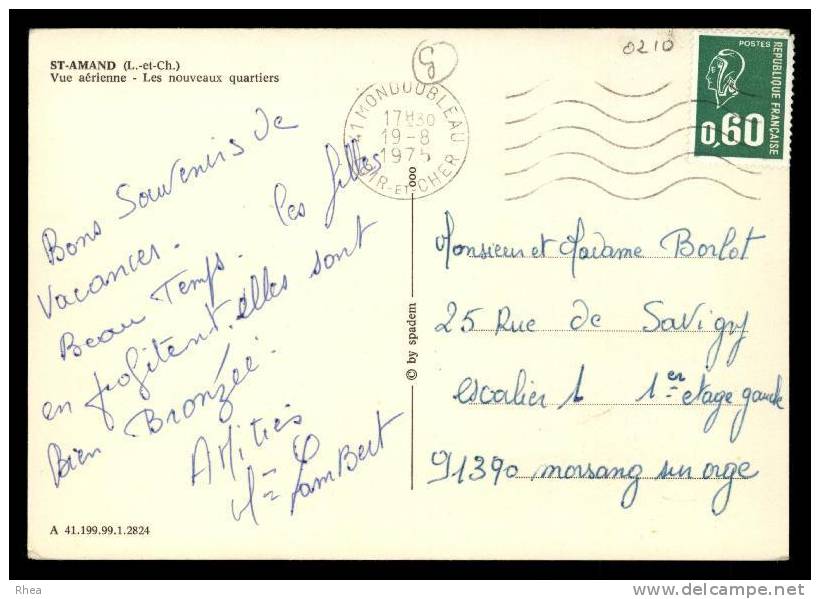 ST-AMAND (L.-et-Ch.)
Vue aérienne - Les nouveaux quartiers
Bons Souvenirs de
Vacances.
Beau Temps. les filles
en profitent. elles sont
bien Bronzée.
Amitiés
Mme Lambert
A 41.199.99.1.2824
© by spadem
ooo
41 MONDOUBLEAU
17H30
19-8
1975
LOIR-ET-CHER
G
0210
POSTES
REPUBLIQUE FRANÇAISE
0,60
Monsieur et Madame Borlot
25 Rue de Savigny
escalier 1 1er etage gauche
91390 morsang sur orge
Rhea
www.delcampe.net